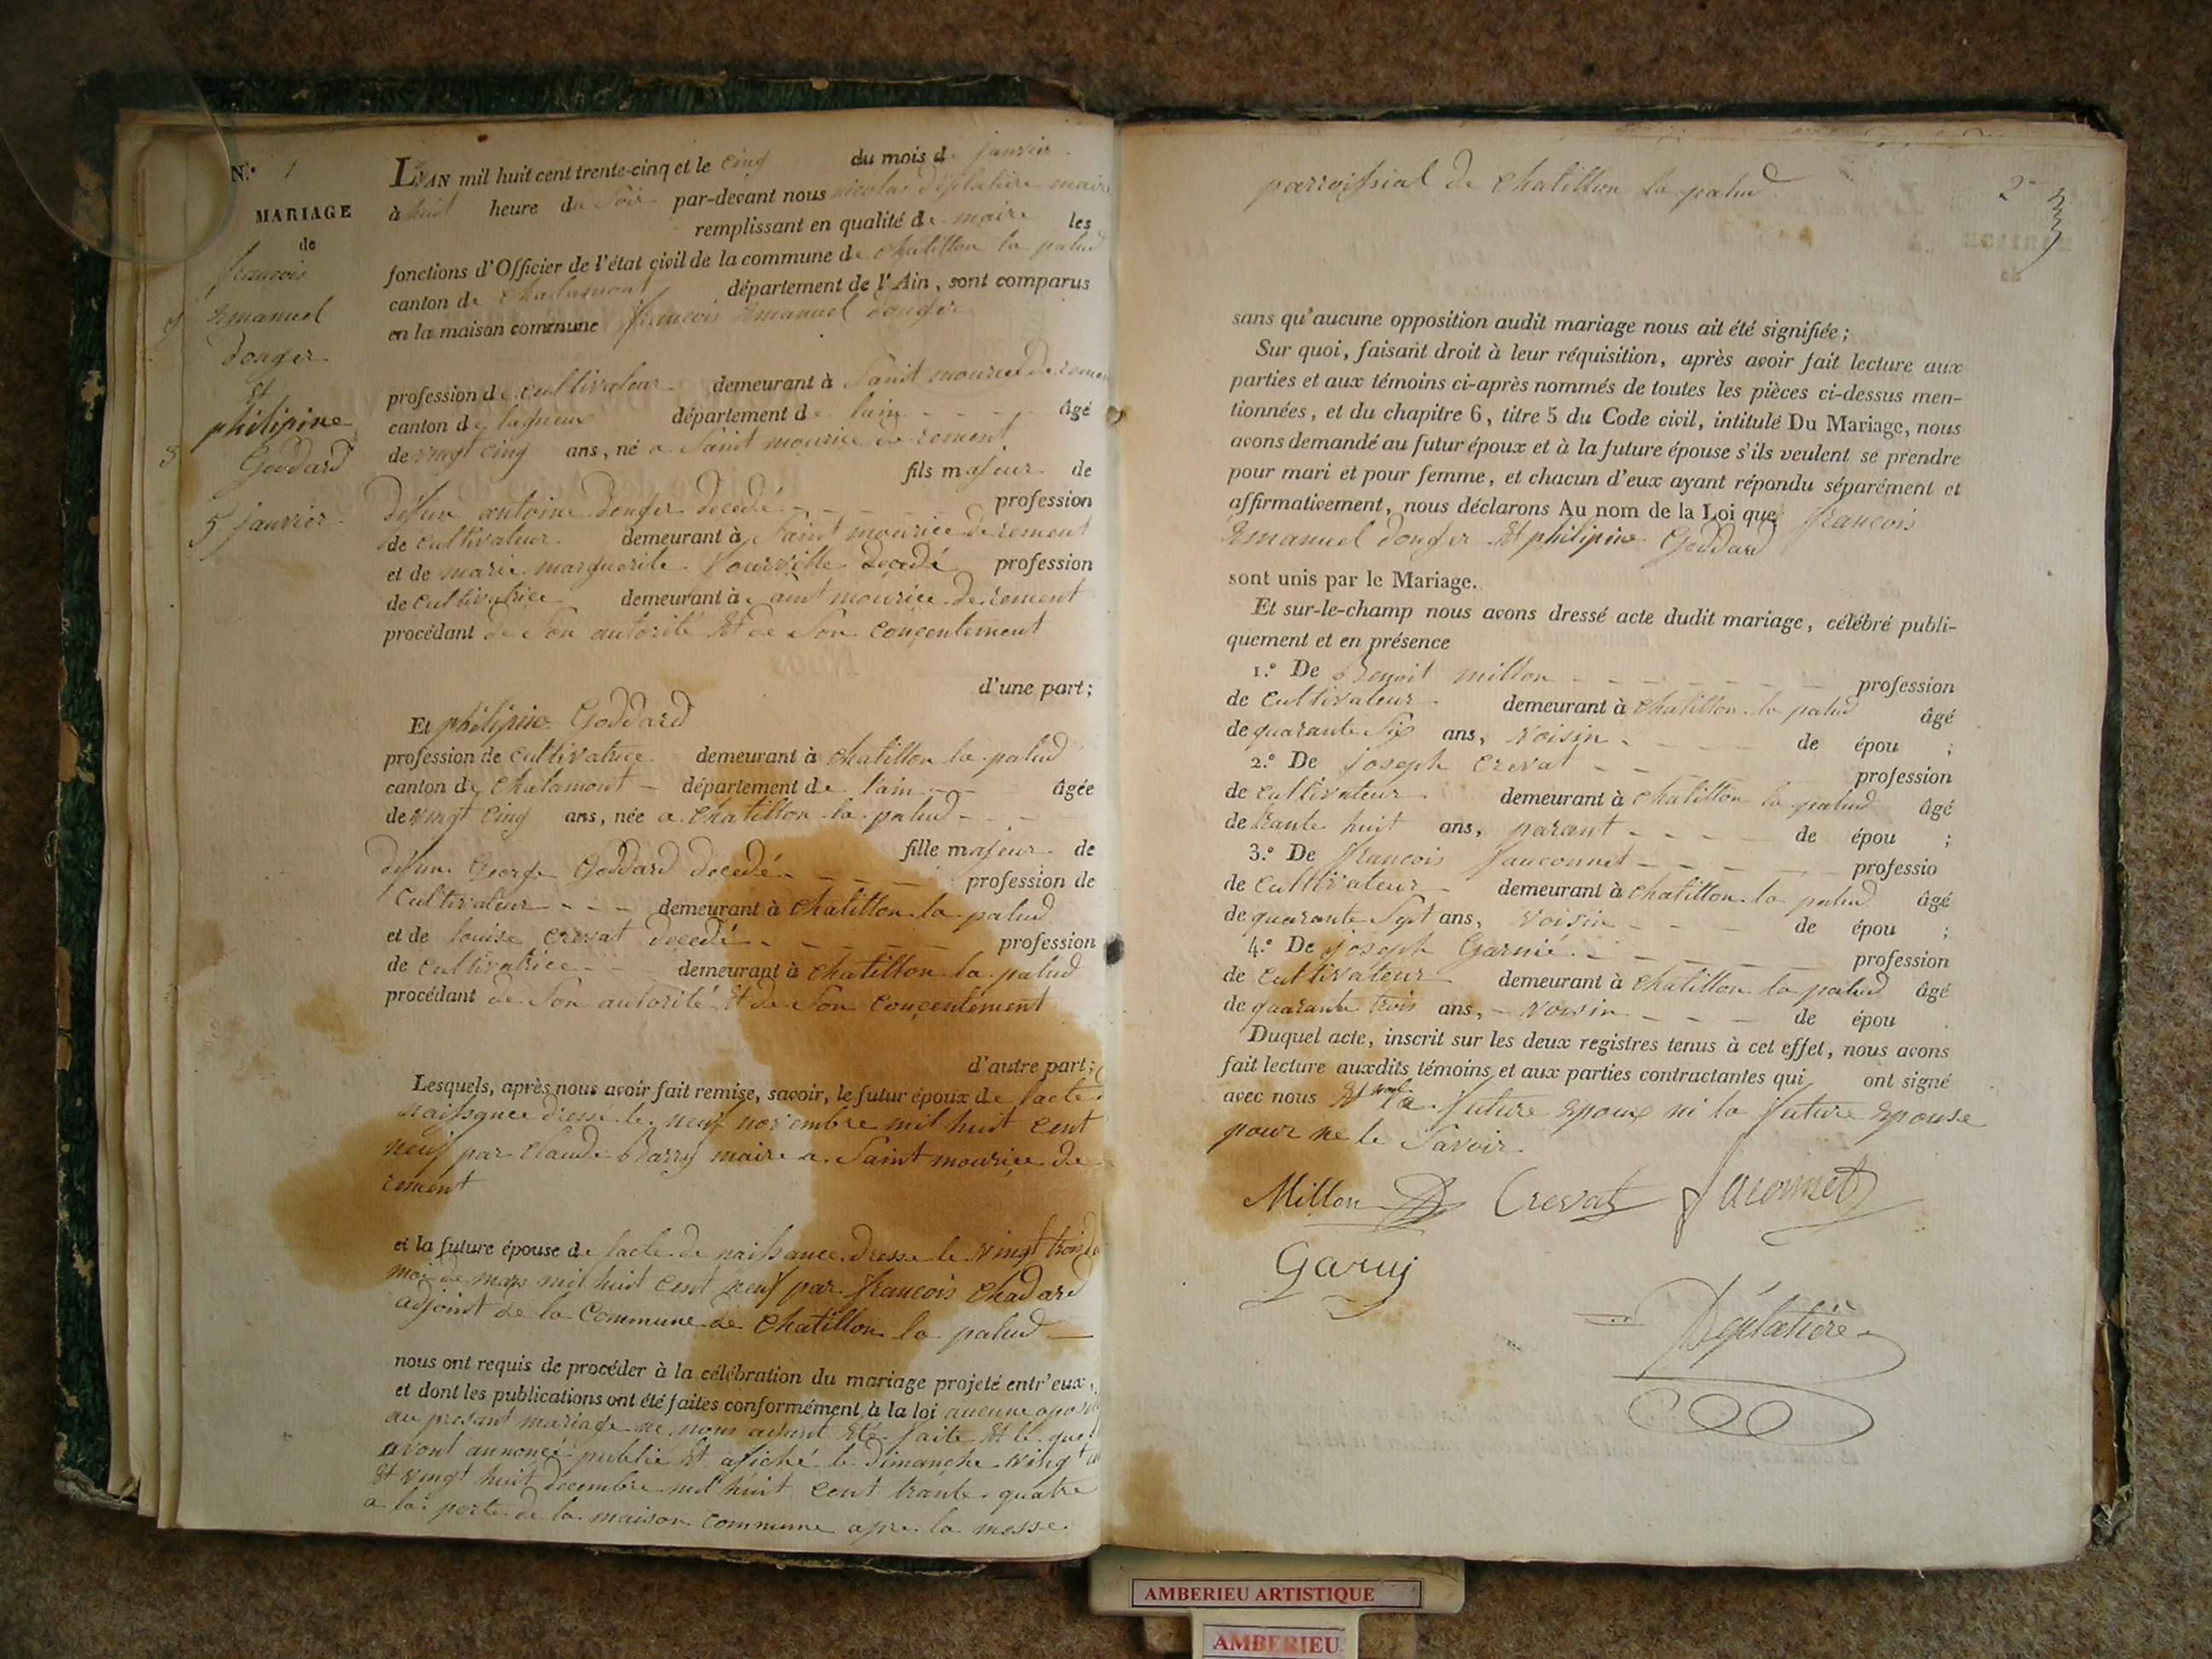 N.° 1
MARIAGE
de
francois
Emanuel
donger
Et
philipine
Goddard
5 janvier
L'AN mil huit cent trente-cinq et le cinq du mois de janvier
à huit heure du Soir par-devant nous nicolas Déplatière maire
remplissant en qualité de maire les
fonctions d'Officier de l'état civil de la commune de chatillon la palud
canton de chalamont département de l'Ain, sont comparus
en la maison commune francois Emanuel donger
profession de cultivateur demeurant à Saint mourice de remen
canton de lagnieux département de lain âgé
de vingt cinq ans, né a Saint mourice de rement
fils majeur de
défun antoine donger décedé profession
de cultivateur demeurant à Saint mourice de rement
et de marie marguerite Vourville décedé profession
de cultivatrice demeurant à Saint mourice de rement
procédant de Son autorité Et de Son conçentement
d'une part;
Et philipine Goddard
profession de cultivatrice demeurant à chatillon la palud
canton de chalamont département de lain âgée
de vingt cinq ans, née a chatillon la palud
fille majeur de
défun George Goddard décedé profession de
Cultivateur demeurant à chatillon la palud
et de louise crevat décedé profession
de cultivatrice demeurant à chatillon la palud
procédant de Son autorité Et de Son conçentement
d'autre part;
Lesquels, après nous avoir fait remise, savoir, le futur époux de lacte
naissance dressé le neuf novembre mil huit cent
neuf par claude Barry maire a Saint mouriçe de
rement
et la future épouse de lacte de naissance dressé le vingt trois du
moi de mars mil huit cent neuf par francois chadard
adjoint de la Commune de chatillon la palud
nous ont requis de procéder à la célébration du mariage projeté entr'eux,
et dont les publications ont été faites conformément à la loi aucune
au présant mariage ne nous aiant Eté faite Et le quel
avont annoncé publié Et afiché le dimanche vingt un
Et vingt huit décembre mil huit cent trante quatre
a la porte de la maison commune apre la messe
parroissial de chatillon la palud
2
sans qu'aucune opposition audit mariage nous ait été signifiée;
Sur quoi, faisant droit à leur réquisition, après avoir fait lecture aux
parties et aux témoins ci-après nommés de toutes les pièces ci-dessus men-
tionnées, et du chapitre 6, titre 5 du Code civil, intitulé Du Mariage, nous
avons demandé au futur époux et à la future épouse s'ils veulent se prendre
pour mari et pour femme, et chacun d'eux ayant répondu séparément et
affirmativement, nous déclarons Au nom de la Loi que francois
Emanuel donger Et philipine Goddard
sont unis par le Mariage.
Et sur-le-champ nous avons dressé acte dudit mariage, célébré publi-
quement et en présence
1.° De Benoit millon profession
de cultivateur demeurant à chatillon la palud âgé
de quarante Six ans, voisin de épou ;
2.° De joseph crevat profession
de cultivateur demeurant à chatillon la palud âgé
de trante huit ans, parant de épou ;
3.° De francois fauconnet professio
de cultivateur demeurant à chatillon la palud âgé
de quarante Sept ans, voisin de épou ;
4.° De joseph Garnié profession
de cultivateur demeurant à chatillon la palud âgé
de quarante trois ans, voisin de épou
Duquel acte, inscrit sur les deux registres tenus à cet effet, nous avons
fait lecture auxdits témoins et aux parties contractantes qui ont signé
avec nous future epoux ni la future epouse
pour ne le Savoir
Millon Crevat faconnet
Garny
Déplatière
AMBERIEU ARTISTIQUE
AMBERIEU